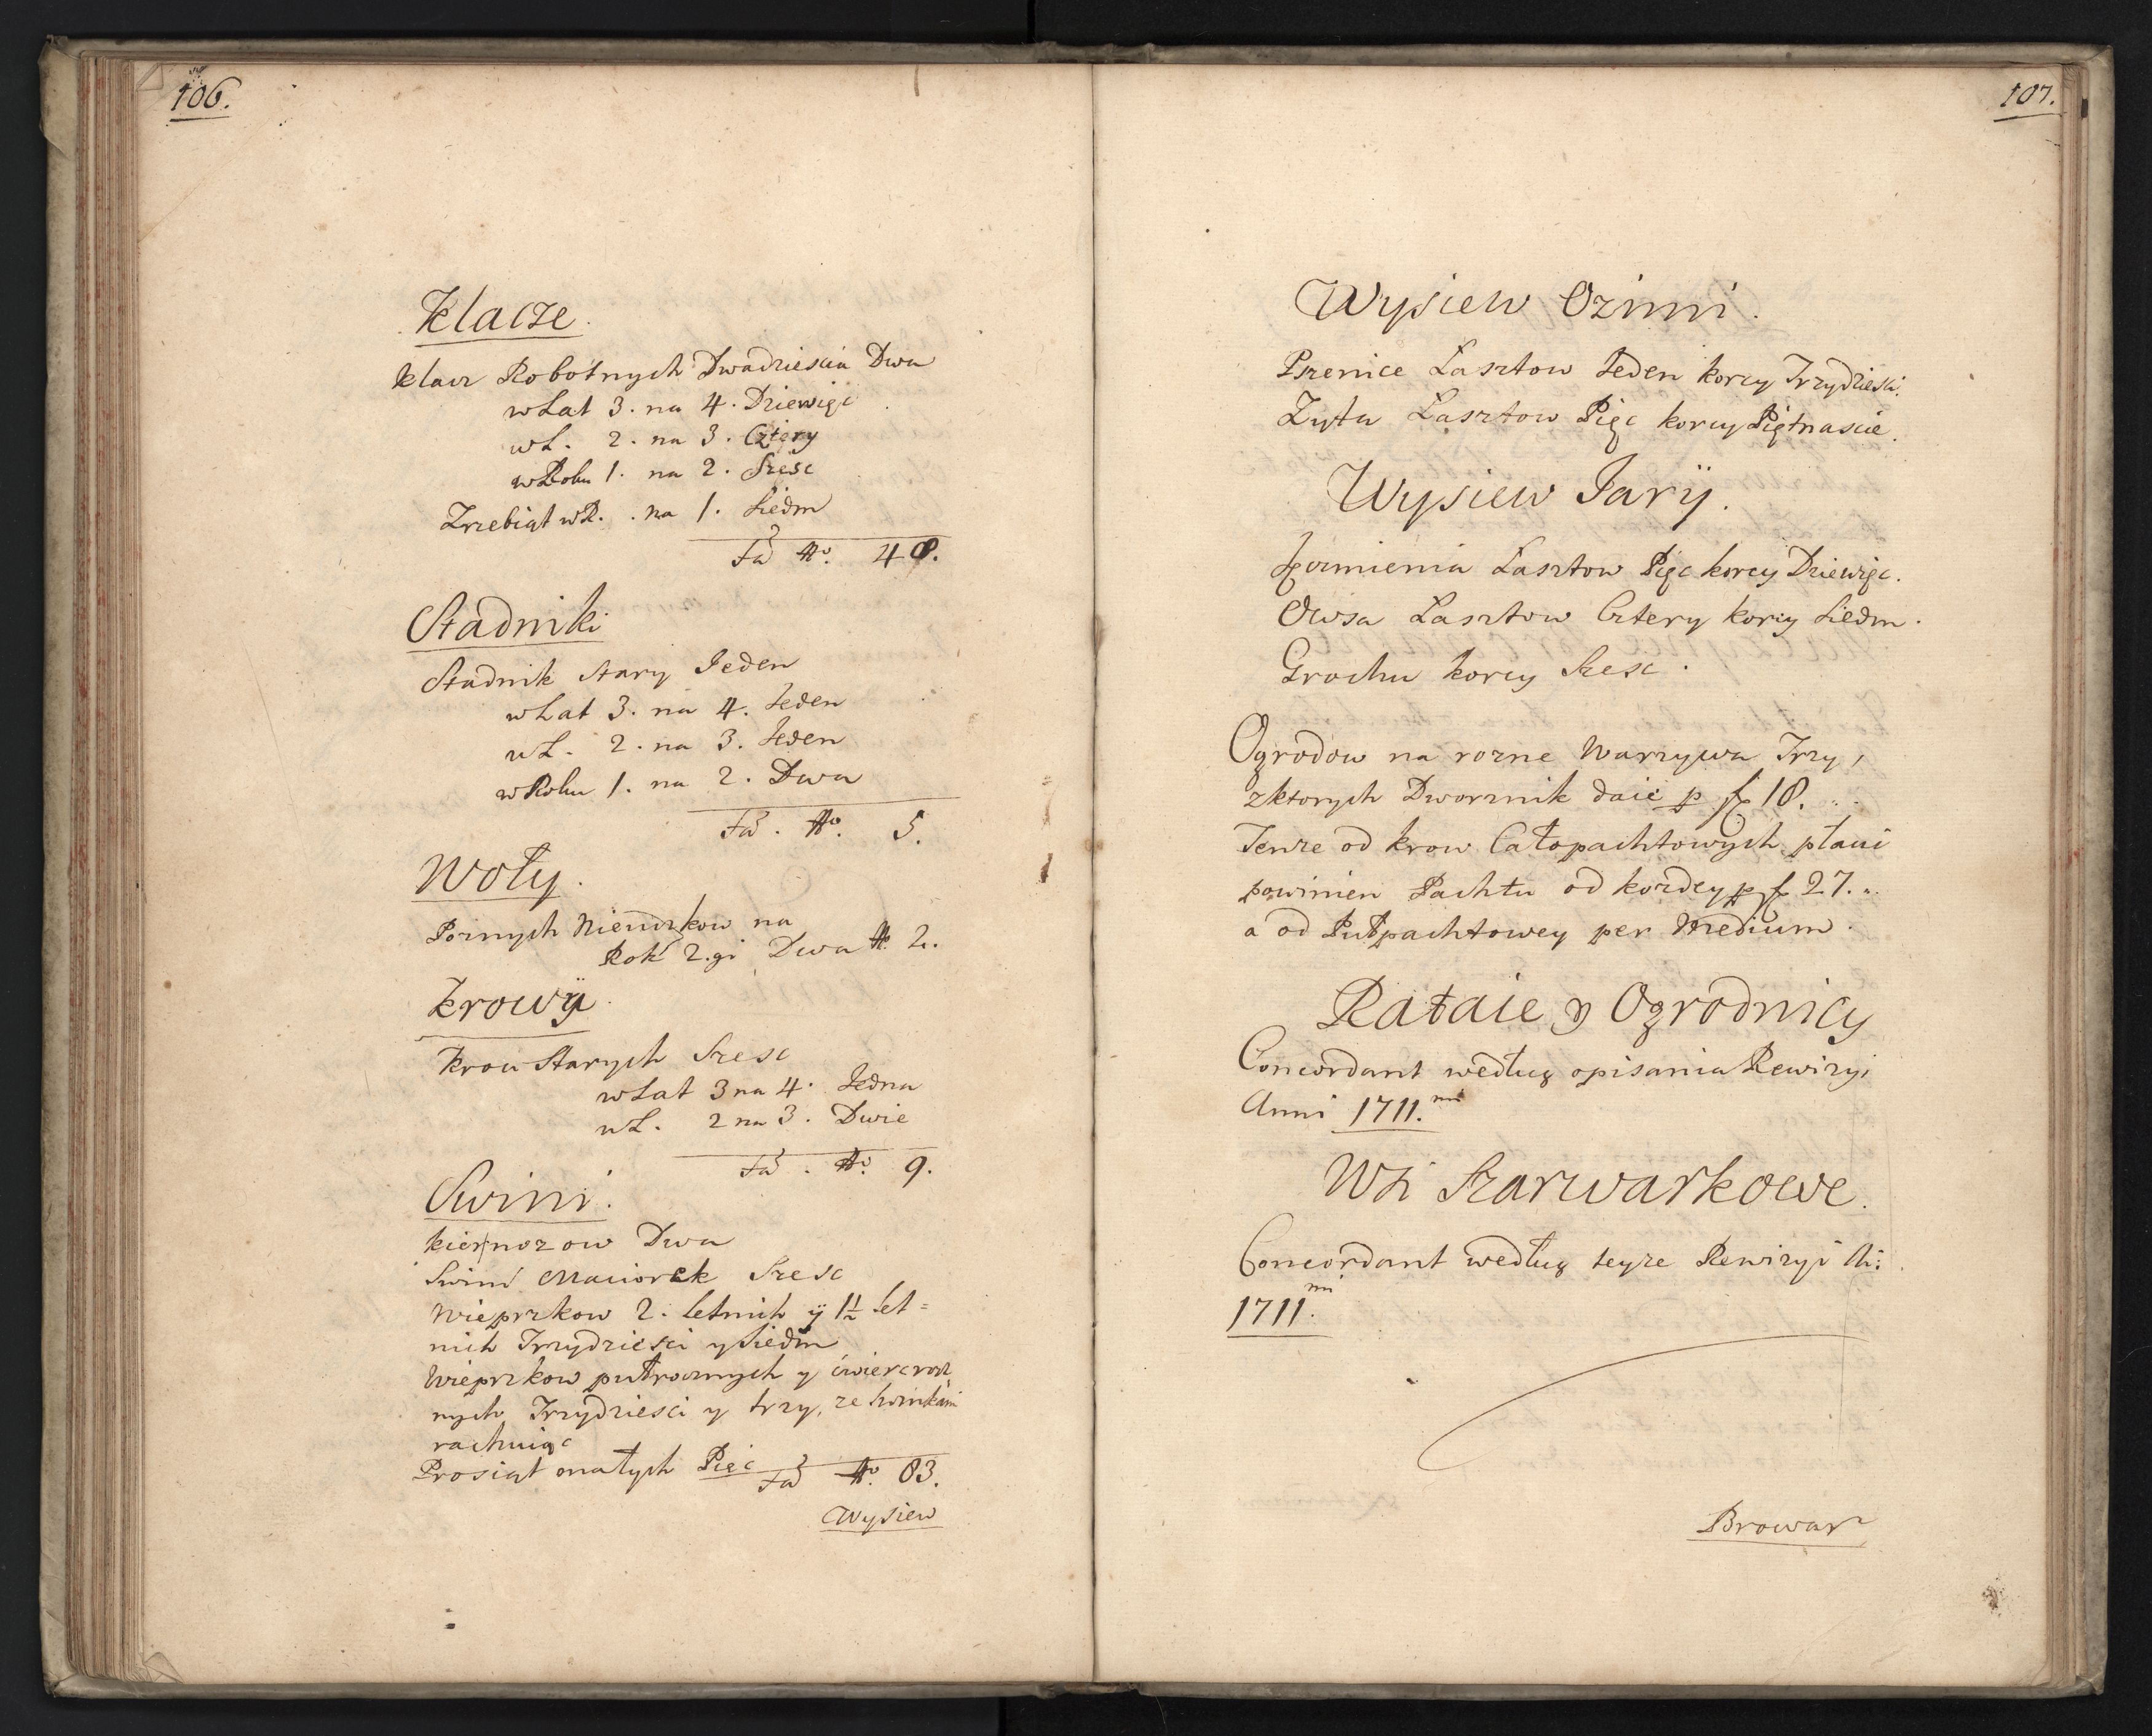 106.
Klacze.
Klacz Robotnych Dwadziescia Dwa
w Lat 3. na 4. Dziewięc
w L. 2. na 3. Cztery
w Roku 1. na 2. Szesc
Zrzebiąt w R. . na 1. Siedm
Fa No. 48.
Stadniki
Stadnik Stary Jeden
w Lat 3. na 4. Jeden
w L. 2. na 3. Jeden
w Roku 1. na 2. Dwa
Fa. No. 5.
Woły.
na
Rok 2.gi Dwa No 2.
Krowÿ.
Krow Starych Szesc
w Lat 3 na 4. Jedna
w L. 2 na 3. Dwie
Fa. No. 9.
Swini.
kiernozow Dwa
Swini Maciorek Szesc
Wieprzkow 2. letnich ÿ 1½ let=
nich Trzydziesci y Siedm
Wieprzkow pułrocznych y cwiercrocz
nych Trzydziesci y trzy, ze swinkami
rachuiąc
Prosiąt małych Pięc
Fa No. 83.
Wysiew
107.
Wysiew Ozimi.
Pszenice Lasztow Jeden korcy Trzydziesci.
Zyta Lasztow Pięc korcy Piętnascie.
Wysiew Jarÿ.
Jęczmienia Lasztow Pięc korcy Dziewięc.
Owsa Lasztow Cztery korcy Siedm.
Grochu korcy Szesc.
Ogrodow na rozne Warzywa Trzy,
zktorych Dworznik daie p f 18. „.
Tenze od krow Całopachtowych płaci
powinien Pachtu od kozdey p f 27. „.
a od Pułpachtowey per Medium.
Rataie y Ogrodnicy
Concordant według opisania Rewizyi
Anni 1711.mi
Wsi Szarwarkowe.
Concordant według teyze Rewizyi Ai:
1711.mi
Browar